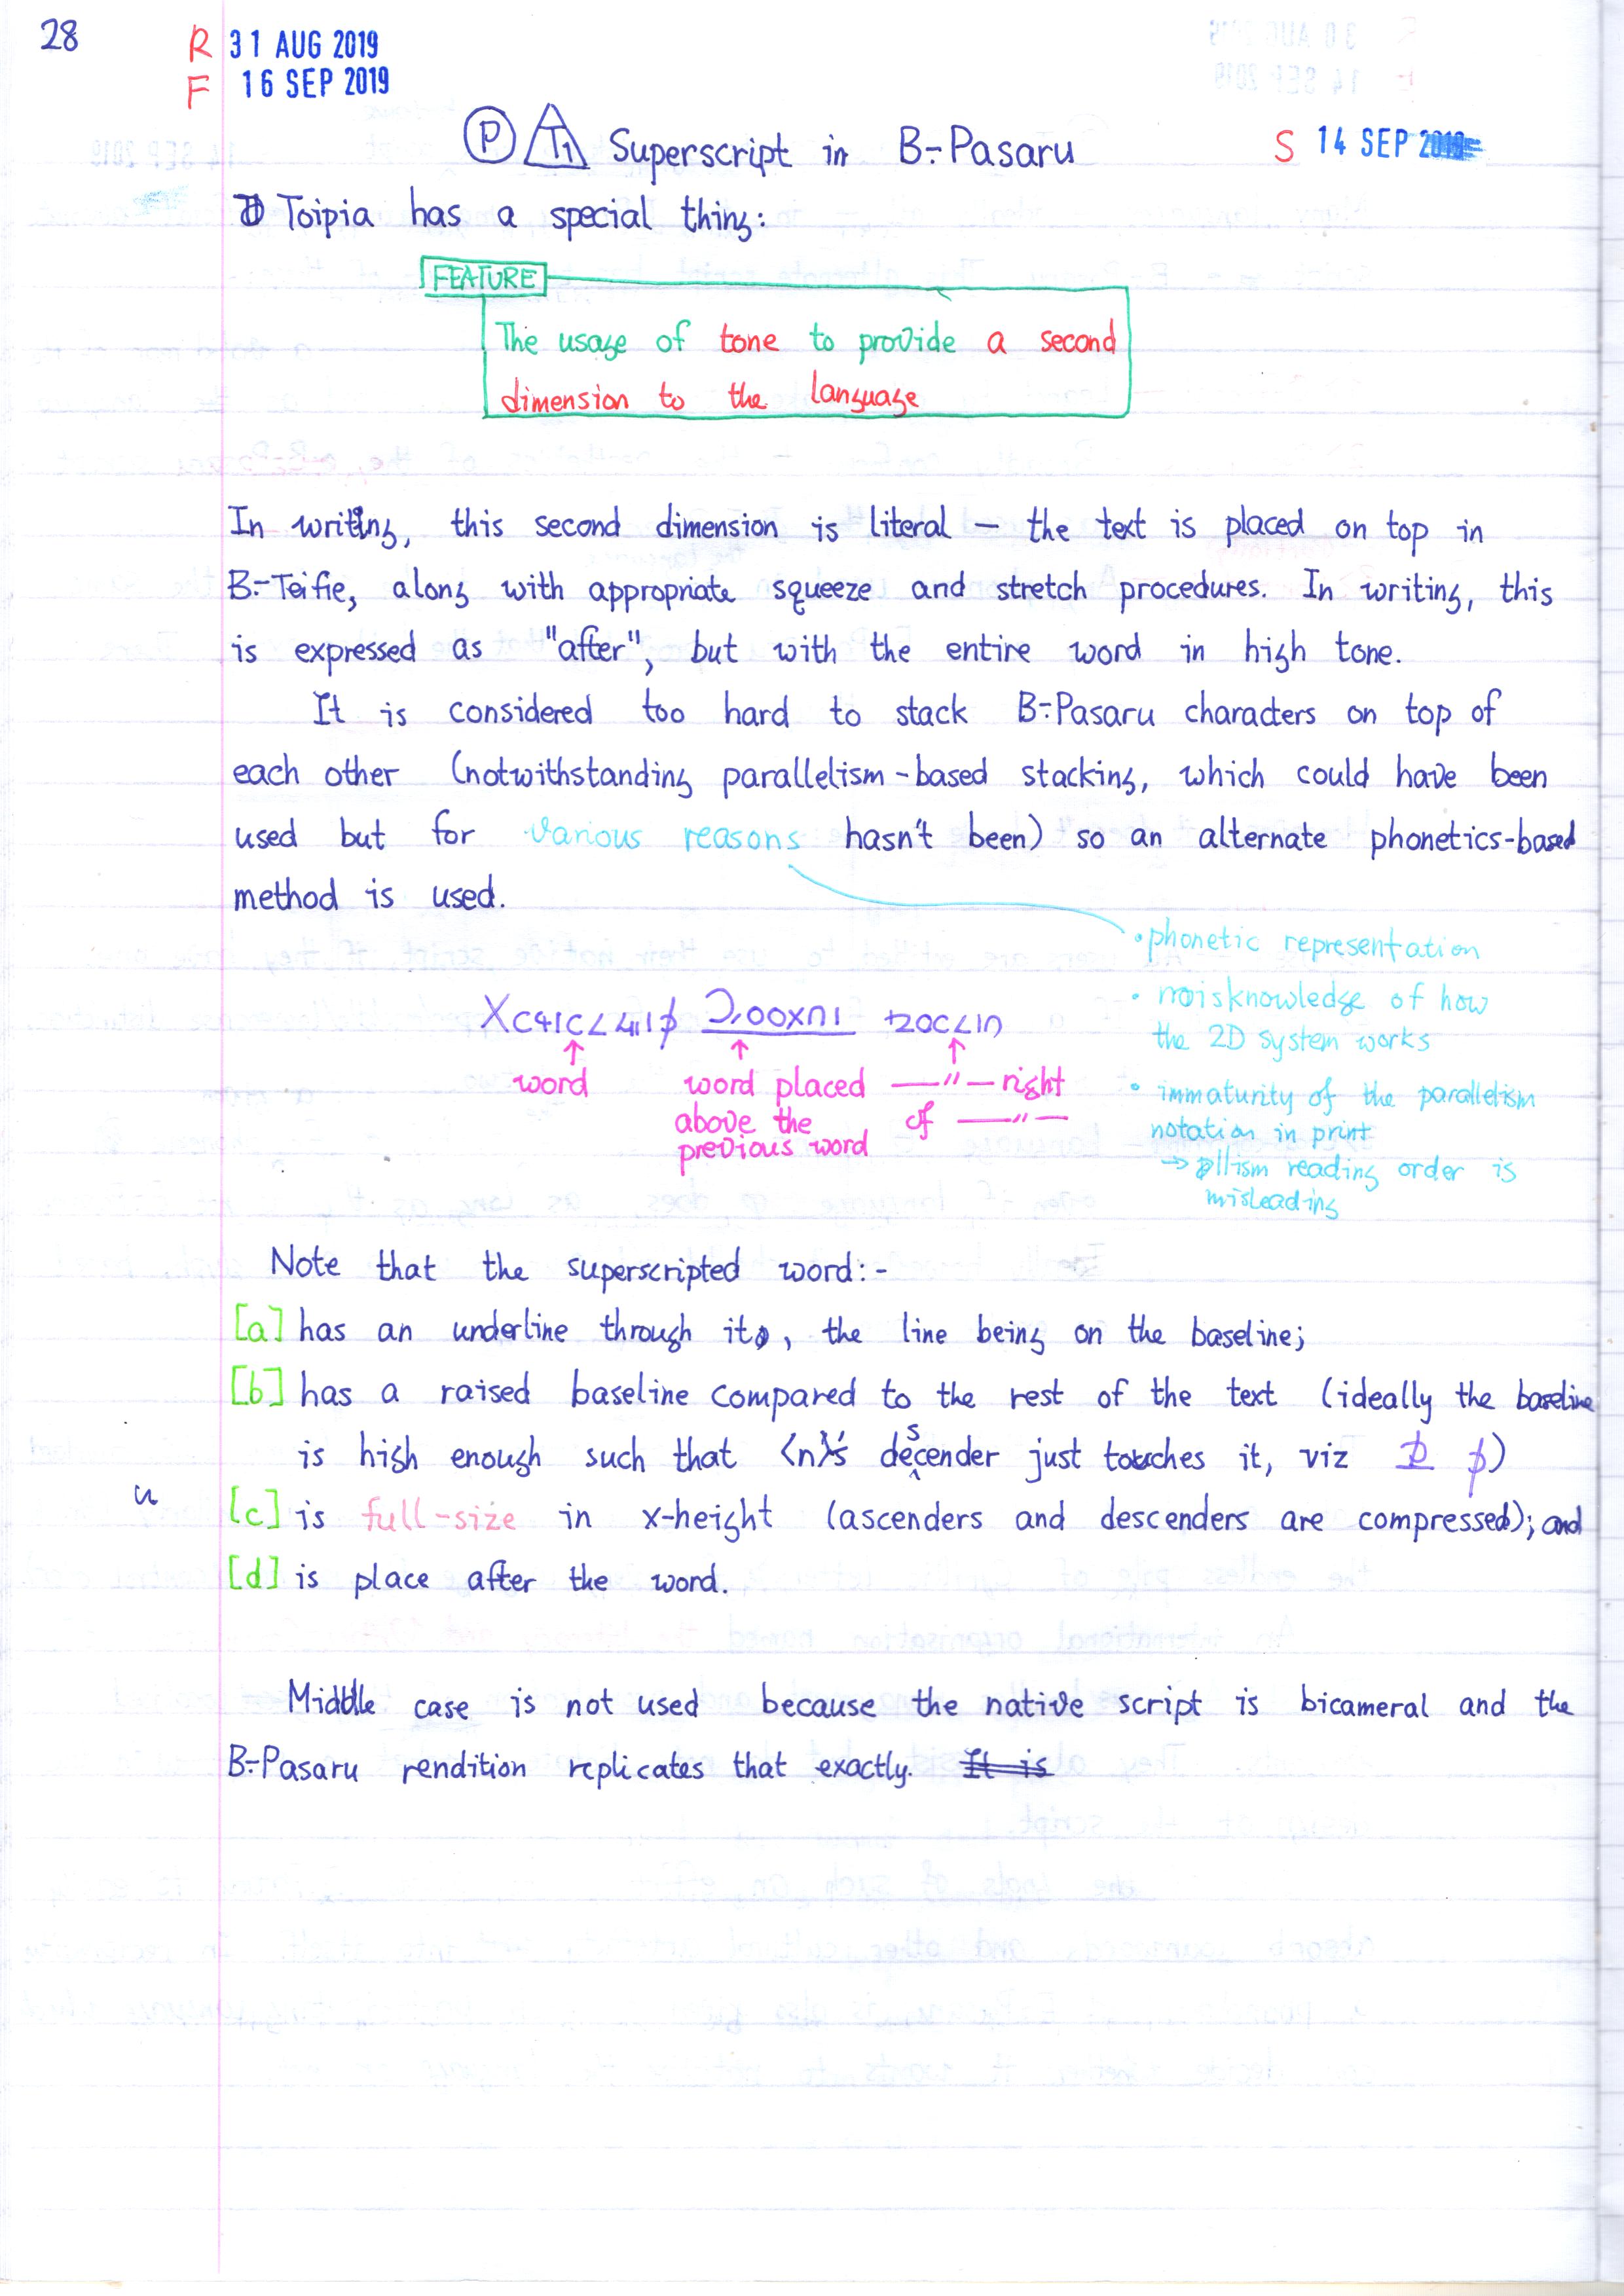 28
R 31 AUG 2019
F 16 SEP 2019
P T1 Superscript in B:-Pasaru
S 14 SEP 2019
Toipia has a special thing:
FEATURE
The usage of tone to provide a second
dimension to the language
In writing, this second dimension is literal – the text is placed on top in
B:-Teifie, along with appropriate squeeze and stretch procedures. In writing, this
is expressed as "after", but with the entire word in high tone.
It is considered too hard to stack B:-Pasaru characters on top of
each other (notwithstanding parallelism-based stacking, which could have been
used but for various reasons hasn't been) so an alternate phonetics-based
method is used.
• phonetic representation
• misknowledge of how
the 2D system works
• immaturity of the parallelism
notation in print
→ llism reading order is
misleading
word
word placed
above the
previous word
—〃— right
of —〃—
Note that the superscripted word:-
[a] has an underline through it, the line being on the baseline;
[b] has a raised baseline compared to the rest of the text (ideally the baseline
is high enough such that <n>'s descender just touches it, viz )
[c] is full-size in x-height (ascenders and descenders are compressed); and
[d] is place after the word.
Middle case is not used because the native script is bicameral and the
B:-Pasaru rendition replicates that exactly. It is